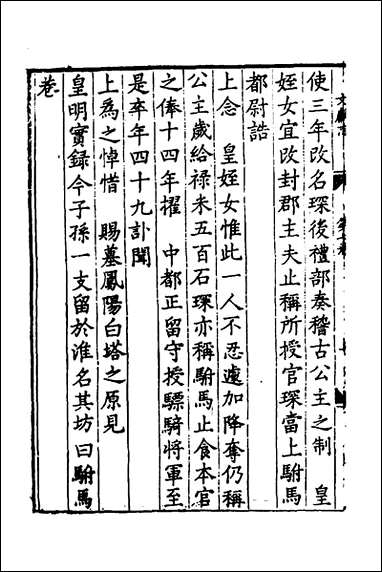 使三年改名琛後禮部奏稽古公主之制　皇
姪女宜改封郡主夫止稱所授官琛當上駙馬
都尉誥
上念　皇姪女惟此一人不忍遽加降奪仍稱
公主歲給禄米五百石琛亦稱駙馬止食本官
之俸十四年擢　中都正留守授驃騎將軍至
是卒年四十九訃聞
上爲之悼惜　賜墓鳳陽白塔之原見
皇明實録今子孫一支留於淮名其坊曰駙馬
巷